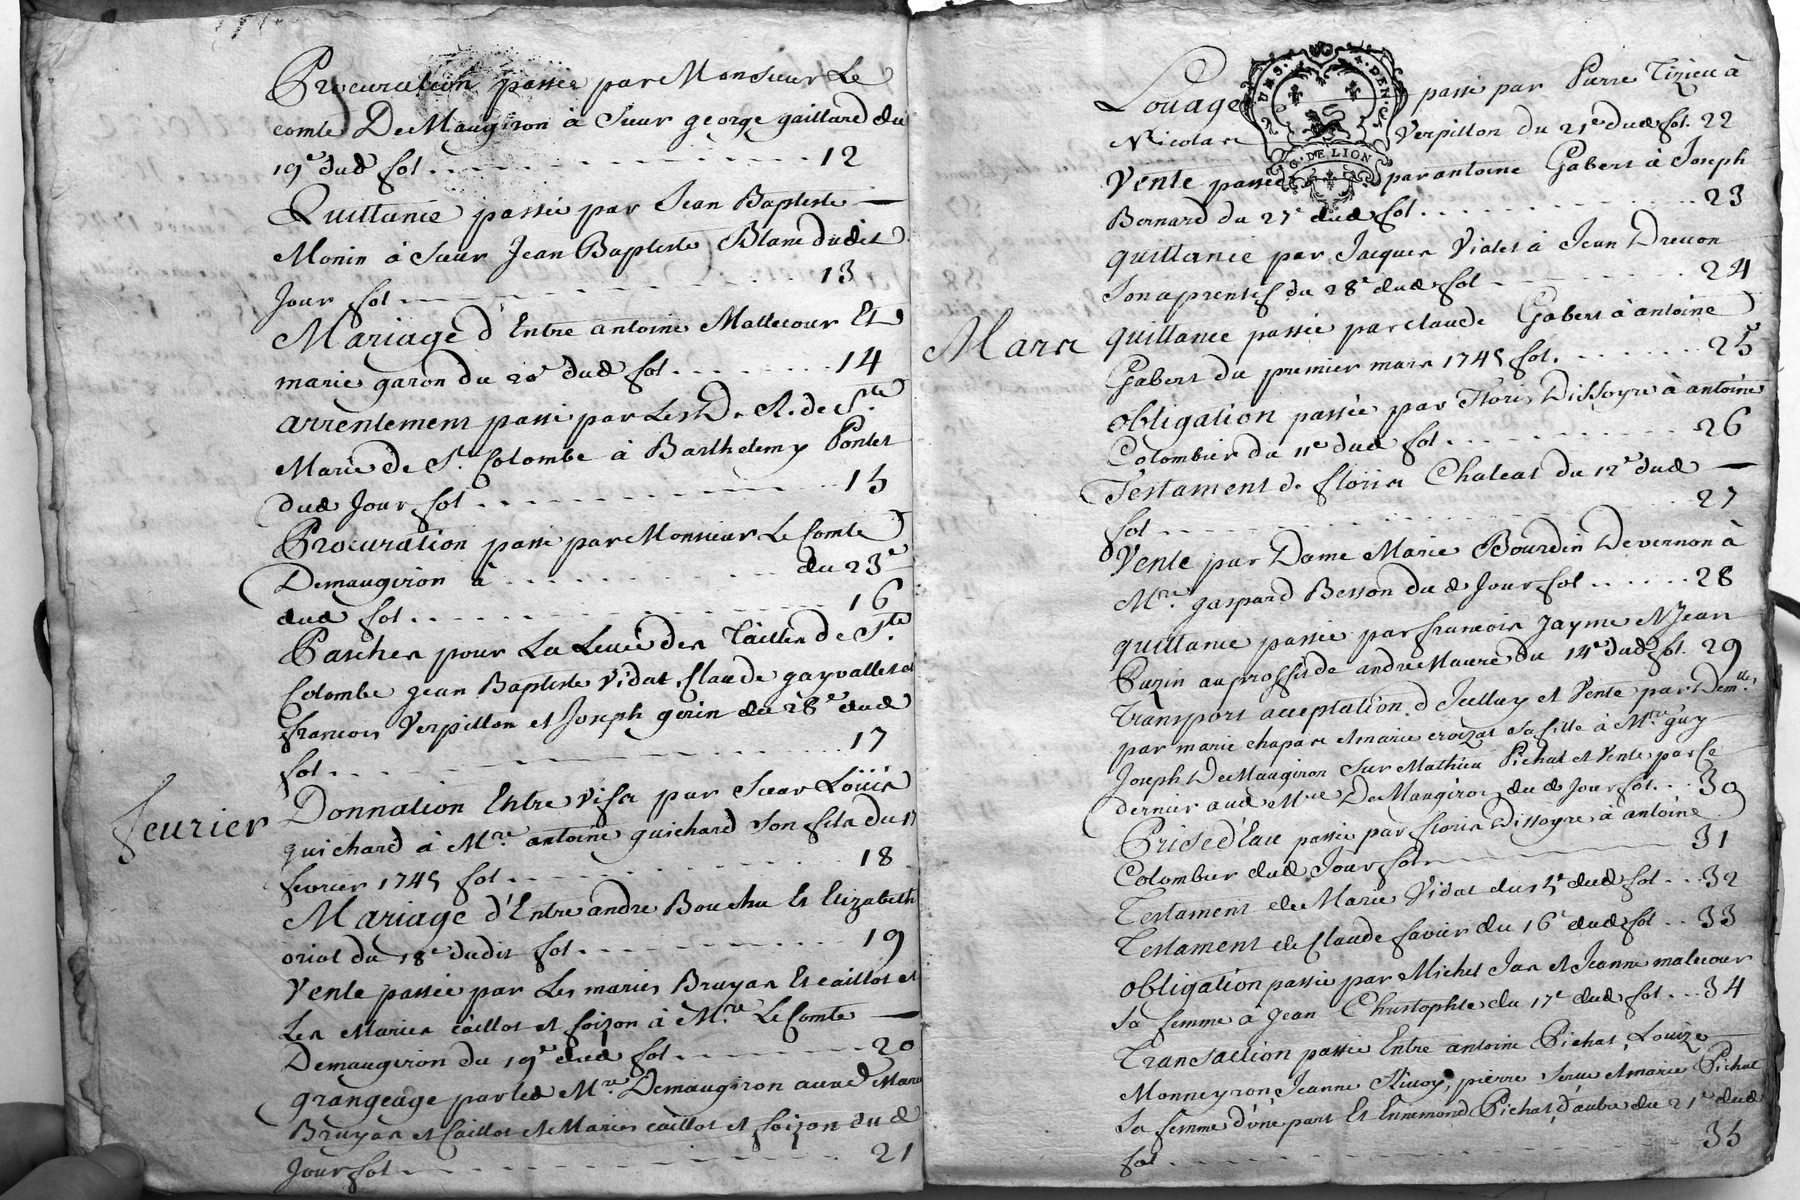 Procuration passée par Monsieur Le
comte DeMaugiron à Sieur george gaillard du
19e dud fol. 12
Quittance passée par Jean Baptiste
Monin à Sieur Jean Baptiste Blanc dudit
Jour fol 13
Mariage d'Entre antoine Mallecour Et
marie garon du 20e dud fol 14
arrentement passé par Les D. R. de Ste
Marie de St. Colombe à Barthelemy Pontet
dud Jour fol 15
Procuration passé par Monsieur Le Comte
Demaugiron à du 23e
dud fol 16
Paschés pour La Levée des Tailles de Ste
Colombe jean Baptiste Vidal, Claude gayvallet et
françois Verpillon et Joseph gerin du 28e dud
fol. 17
feurier
Donnation Entre vifs par Sieur Loüis
guichard à Mre antoine guichard son fils du 17
fevrier 1745 fol 18
Mariage d'Entre andre Bouchu Et Elizabeth
oriol du 18e dudit fol 19
Vente passée par Les mariés Bruyas Et caillot et
Les Mariés caillot et foizon à Mre Le Comte
Demaugiron du 19e dud fol 20
grangeage par led Mre Demaugiron auxd Marié
Bruyas et Caillot et Mariés caillot et foizon dud
Jour fol 21
Louage passé par Pierre Tizieu à
Nicolas Verpillon du 21e dud fol. 22
VRNS. R. DEN. C.
G. DE LION
Vente passée par antoine Gabert à Joseph
Bernard du 27e dud fol 23
quittance par Jacques Violet à Jean Drevon
Son aprentif du 28e dud fol 24
Mars
quittance passée par claude Gabert à antoine
Gabert du premier mars 1745 fol. 25
obligation passée par Floris Dissoyre à antoine
Colombier du 11e dud fol 26
Testament de floris Chaleat du 12e dud
fol 27
Vente par Dame Marie Bourdin Devernon à
Mre. gaspard Besson dud Jour fol 28
quittance passée par françois Jayme & Jean
Buzin au proffit de andre Maure du 14e dud fol. 29
Transport acceptation d'Icelluy et Vente par Demlle
par marie chapas et marie croizat sa fille à Mre guy
Joseph DeMaugiron Sur Mathieu Pichat et Vente par Ce
dernier aud Mre DeMaugiron dud Jour fol. 30
Prise d'Eau passée par floris Dissoyre à antoine
Colombier dud Jour fol 31
Testament de Marie Vidal du 15e dud fol 32
Testament de Claude favier du 16e dud fol 33
obligation passée par Michel Jas et Jeanne malecour
Sa femme à Jean Christophle du 17e dud fol 34
Transaction passée Entre antoine Pichat, Louize
Monneyron, Jeanne Rivoy, pierre Serve et marie Pichat
Sa femme d'une part Et Ennemond Pichat d'autre du 21e dud
fol 35